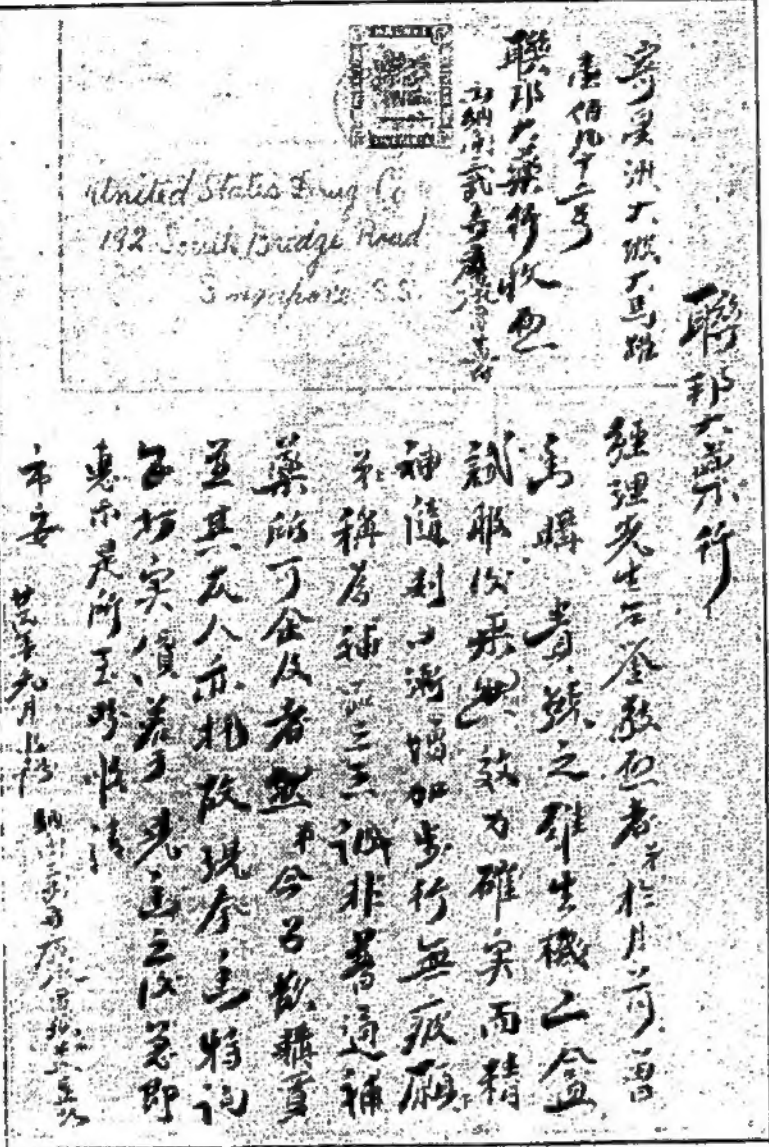 寄星洲大坡大馬路
壹佰九十二号
聯邦大藥行收啟
United States Drug Co
192 South Bridge Road
Singapore S.S.
聯邦大藥行
經理先生台鉴敬啟者弟於月前曾
函購 貴號之雄生機二盒
試服後果然效力確实而精
神隨刻日漸增加步行無疲
弟稱為補品三三誠非普通補
藥所可企及者無弟今又欲購買
並其友人亦托故現奉函特詢
每打实價若干見函之後急即
惠示是所至盼
市安 廿六年九月